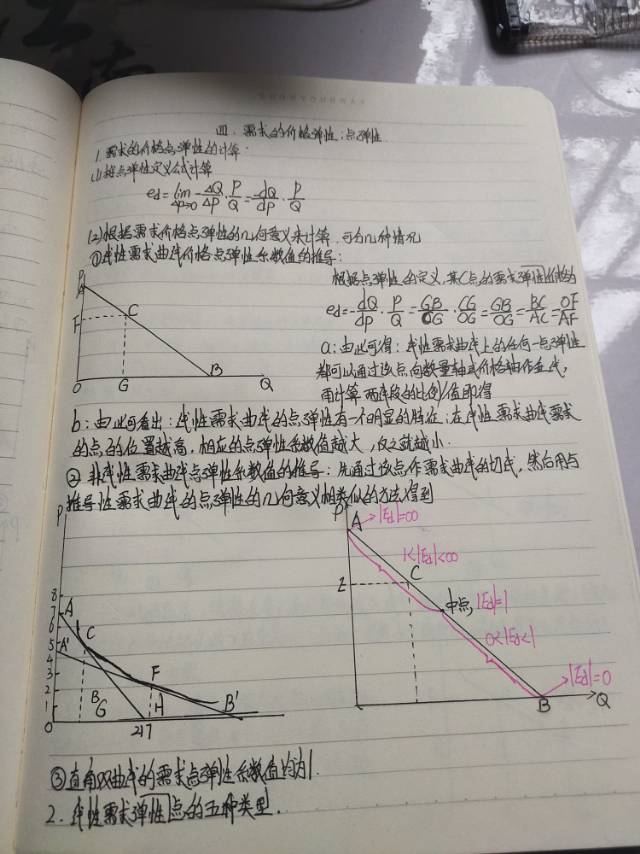 四、需求的价格弹性:点弹性
1.需求的价格点弹性的计算.
(1)按点弹性定义公式计算
ed=lim ΔP→0 -ΔQ/ΔP·P/Q=-dQ/dP·P/Q
(2)根据需求价格点弹性的几何意义来计算.可分几种情况
①线性需求曲线价格点弹性系数值的推导:
P
A
F
C
O
G
B
Q
根据点弹性的定义,某C点的需求弹性价格的
ed=-dQ/dP·P/Q=GB/CG·CG/OG=GB/OG=BC/AC=OF/AF
a:由此可得:线性需求曲线上的任何一点弹性
都可以通过该点向数量轴或价格轴作垂线,
用计算两线段的比例值即得
b:由此可看出:线性需求曲线的点弹性有一个明显的特征:在线性需求曲线需求
的点的位置越高,相应的点弹性系数值越大,反之就越小.
②非线性需求曲线点弹性系数值的推导:先通过该点作需求曲线的切线,然后用与
推导性需求曲线的点弹性的几何意义相类似的方法得到
P
8
7
6
5
4
3
2
1
0
A
A'
C
F
B
G
H
B'
217
P
A
|Ed|=∞
1<|Ed|<∞
C
2
中点,|Ed|=1
0<|Ed|<1
|Ed|=0
B
Q
③直角双曲线的需求点弹性系数值均为1.
2.线性需求弹性点的五种类型.